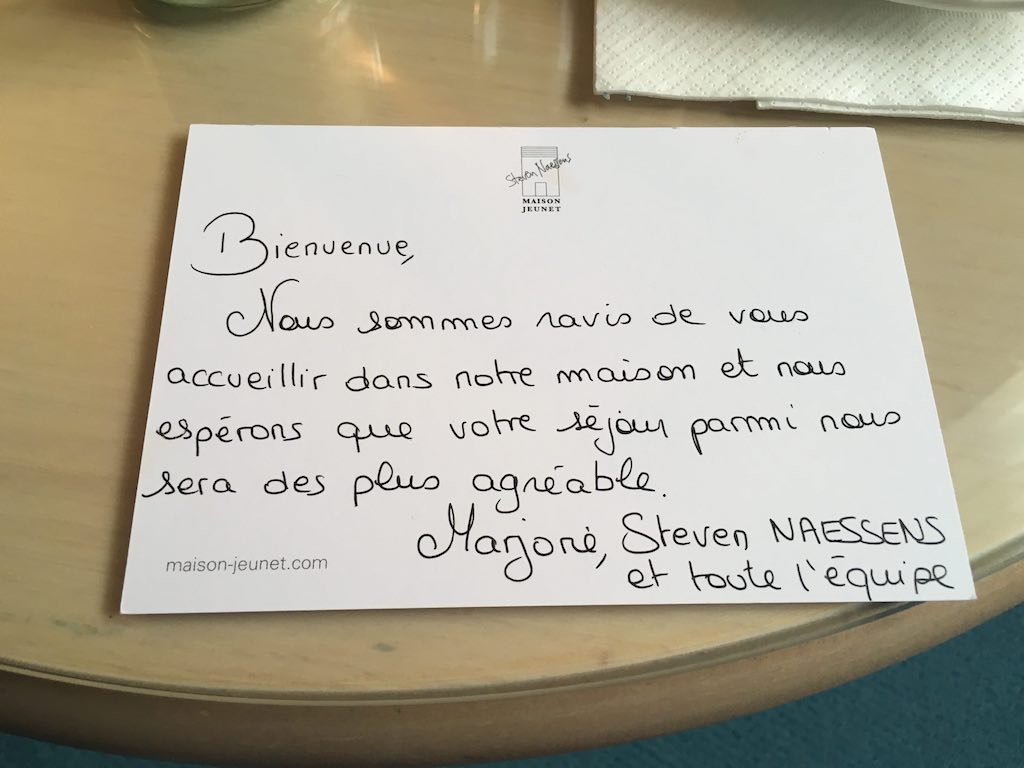 Steven Naessens
MAISON
JEUNET
Bienvenue,
Nous sommes ravis de vous
accueillir dans notre maison et nous
espérons que votre séjour parmi nous
sera des plus agréable.
Marjorie, Steven NAESSENS
et toute l'équipe
maison-jeunet.com